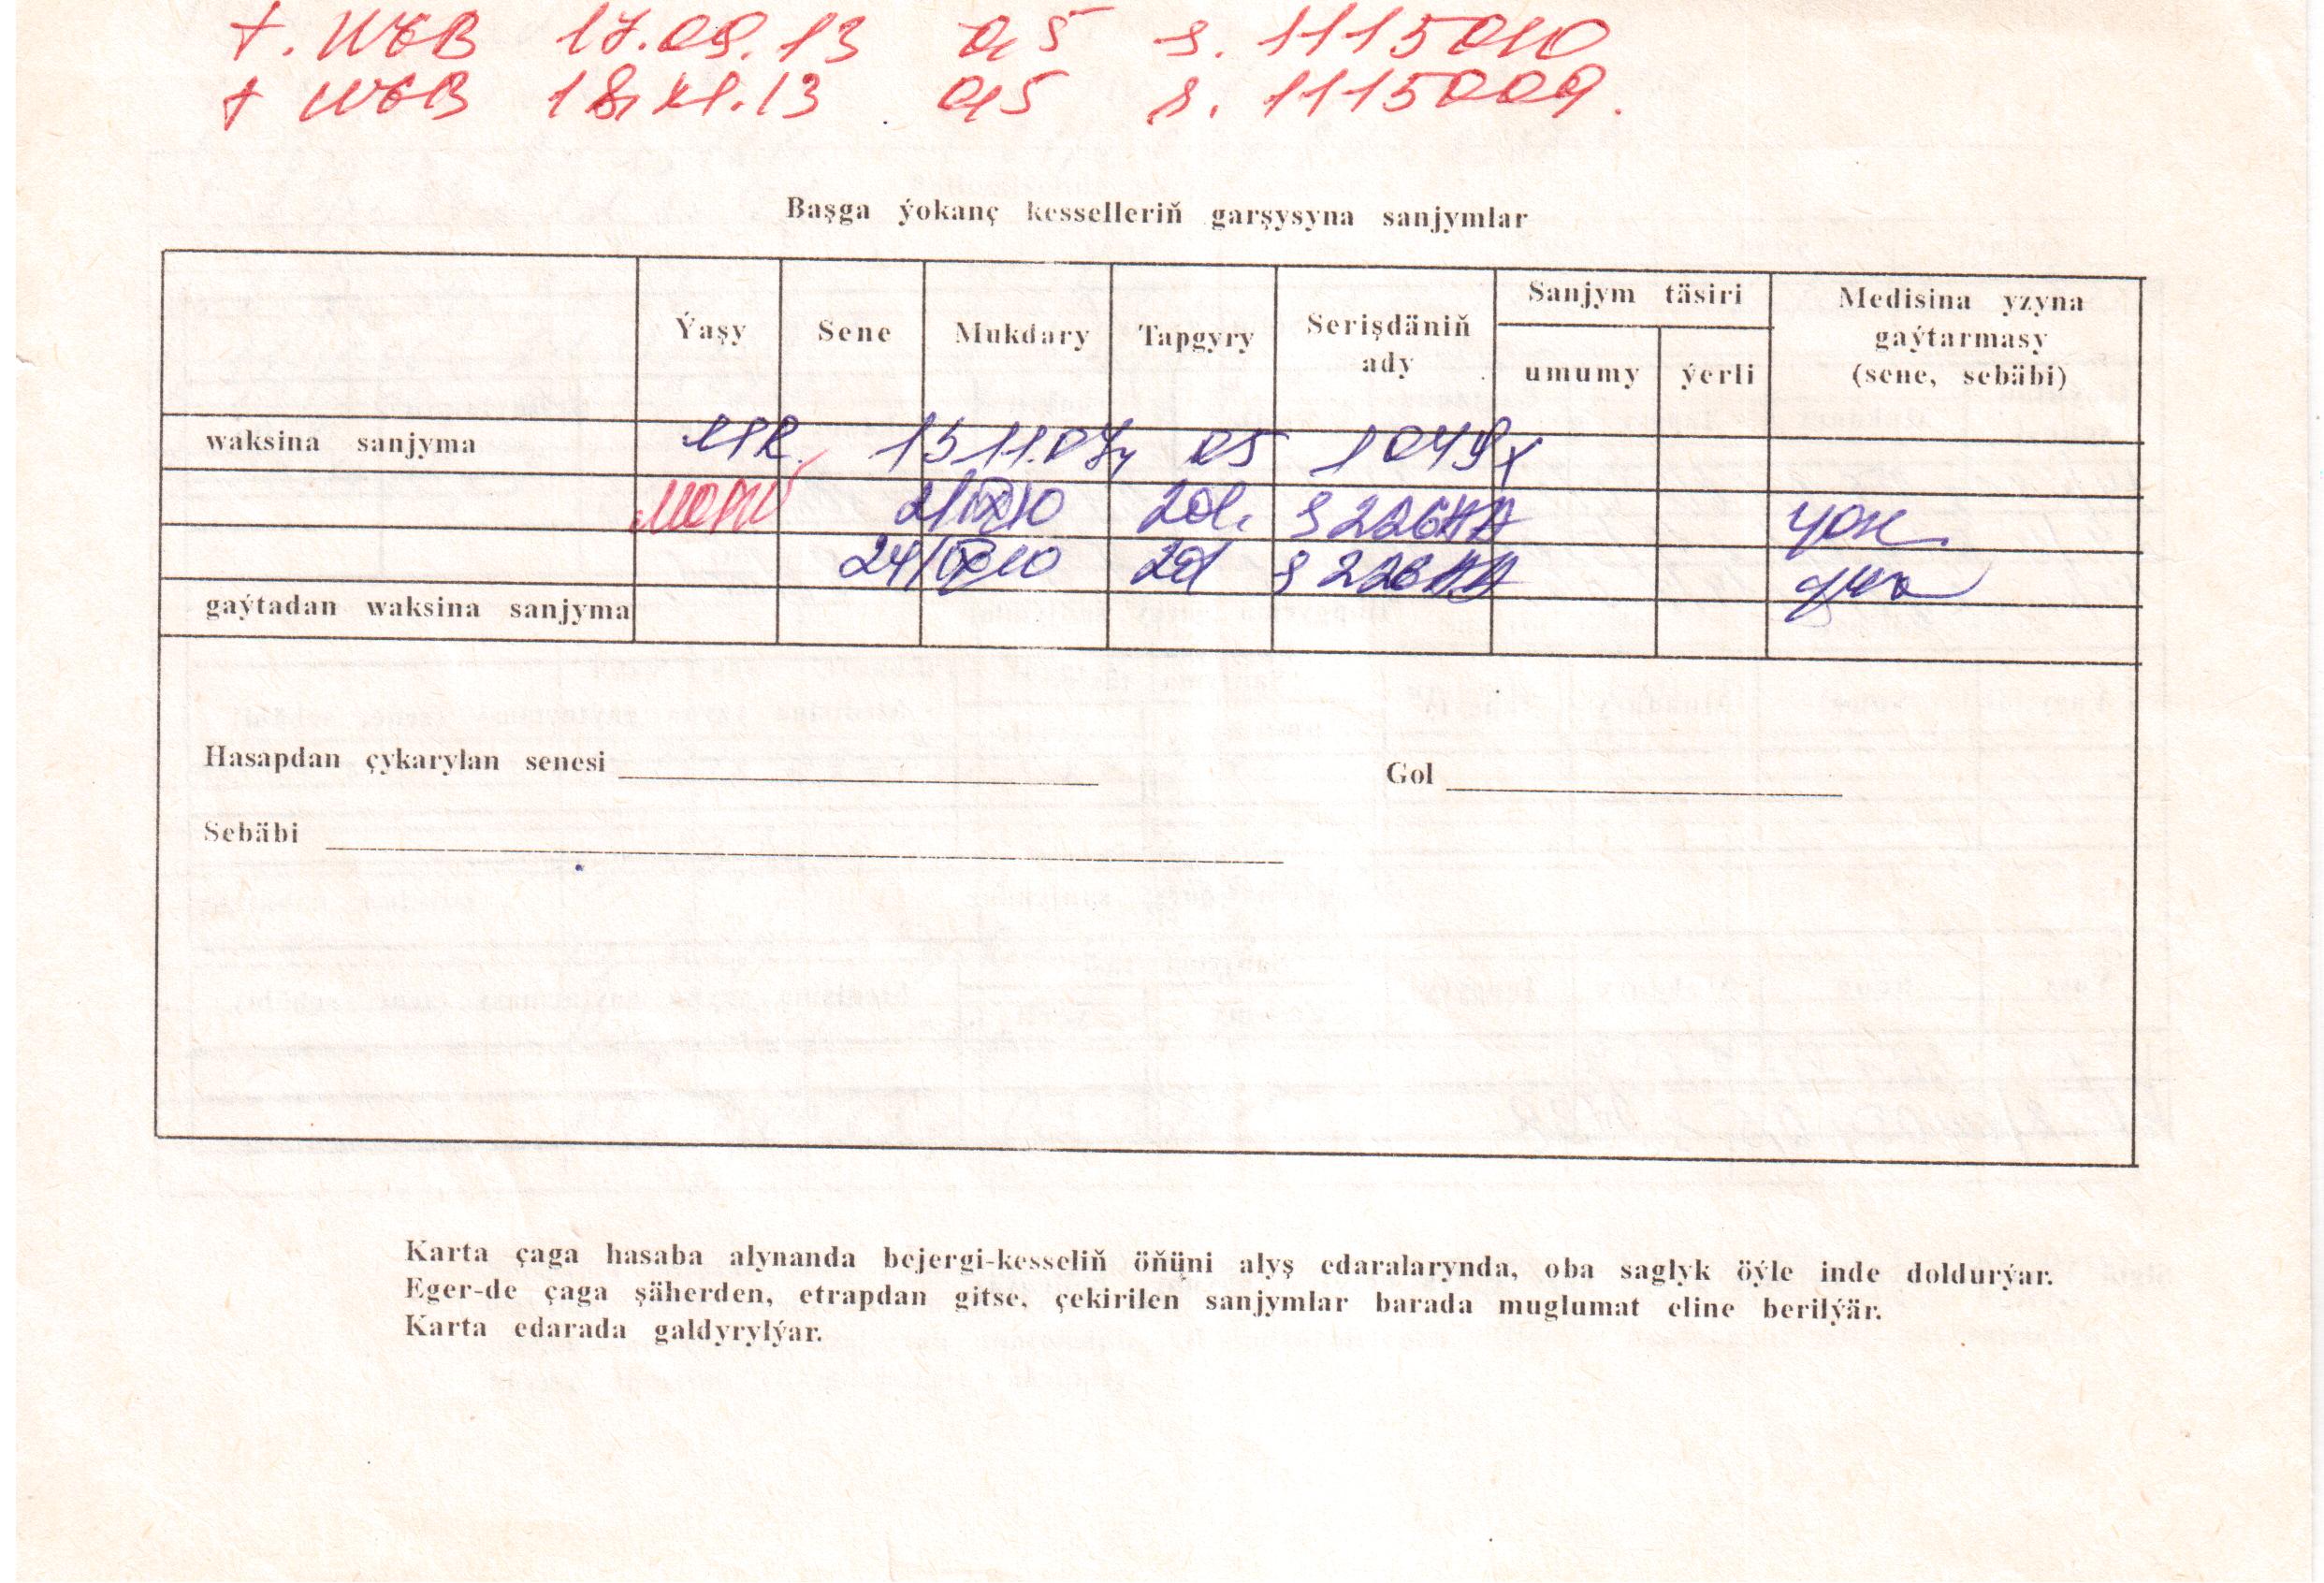 WGB 17.09.13 0,5 s. 1115010
WGB 18.XI.13 0,5 s. 1115009.
Başga ýokanç kesselleriň garşysyna sanjymlar
Ýaşy Sene Mukdary Tapgyry Serişdäniň ady Sanjym täsiri Medisina yzyna gaýtarmasy (sene, sebäbi)
umumy ýerli
waksina sanjyma 05
2d. S226
24/ 10 2d S226
gaýtadan waksina sanjyma
Hasapdan çykarylan senesi Gol
Sebäbi
Karta çaga hasaba alynanda bejergi-kesseliň öňüni alyş edaralarynda, oba saglyk öýle inde doldurýar.
Eger-de çaga şäherden, etrapdan gitse, çekirilen sanjymlar barada muglumat eline berilýär.
Karta edarada galdyrylýar.